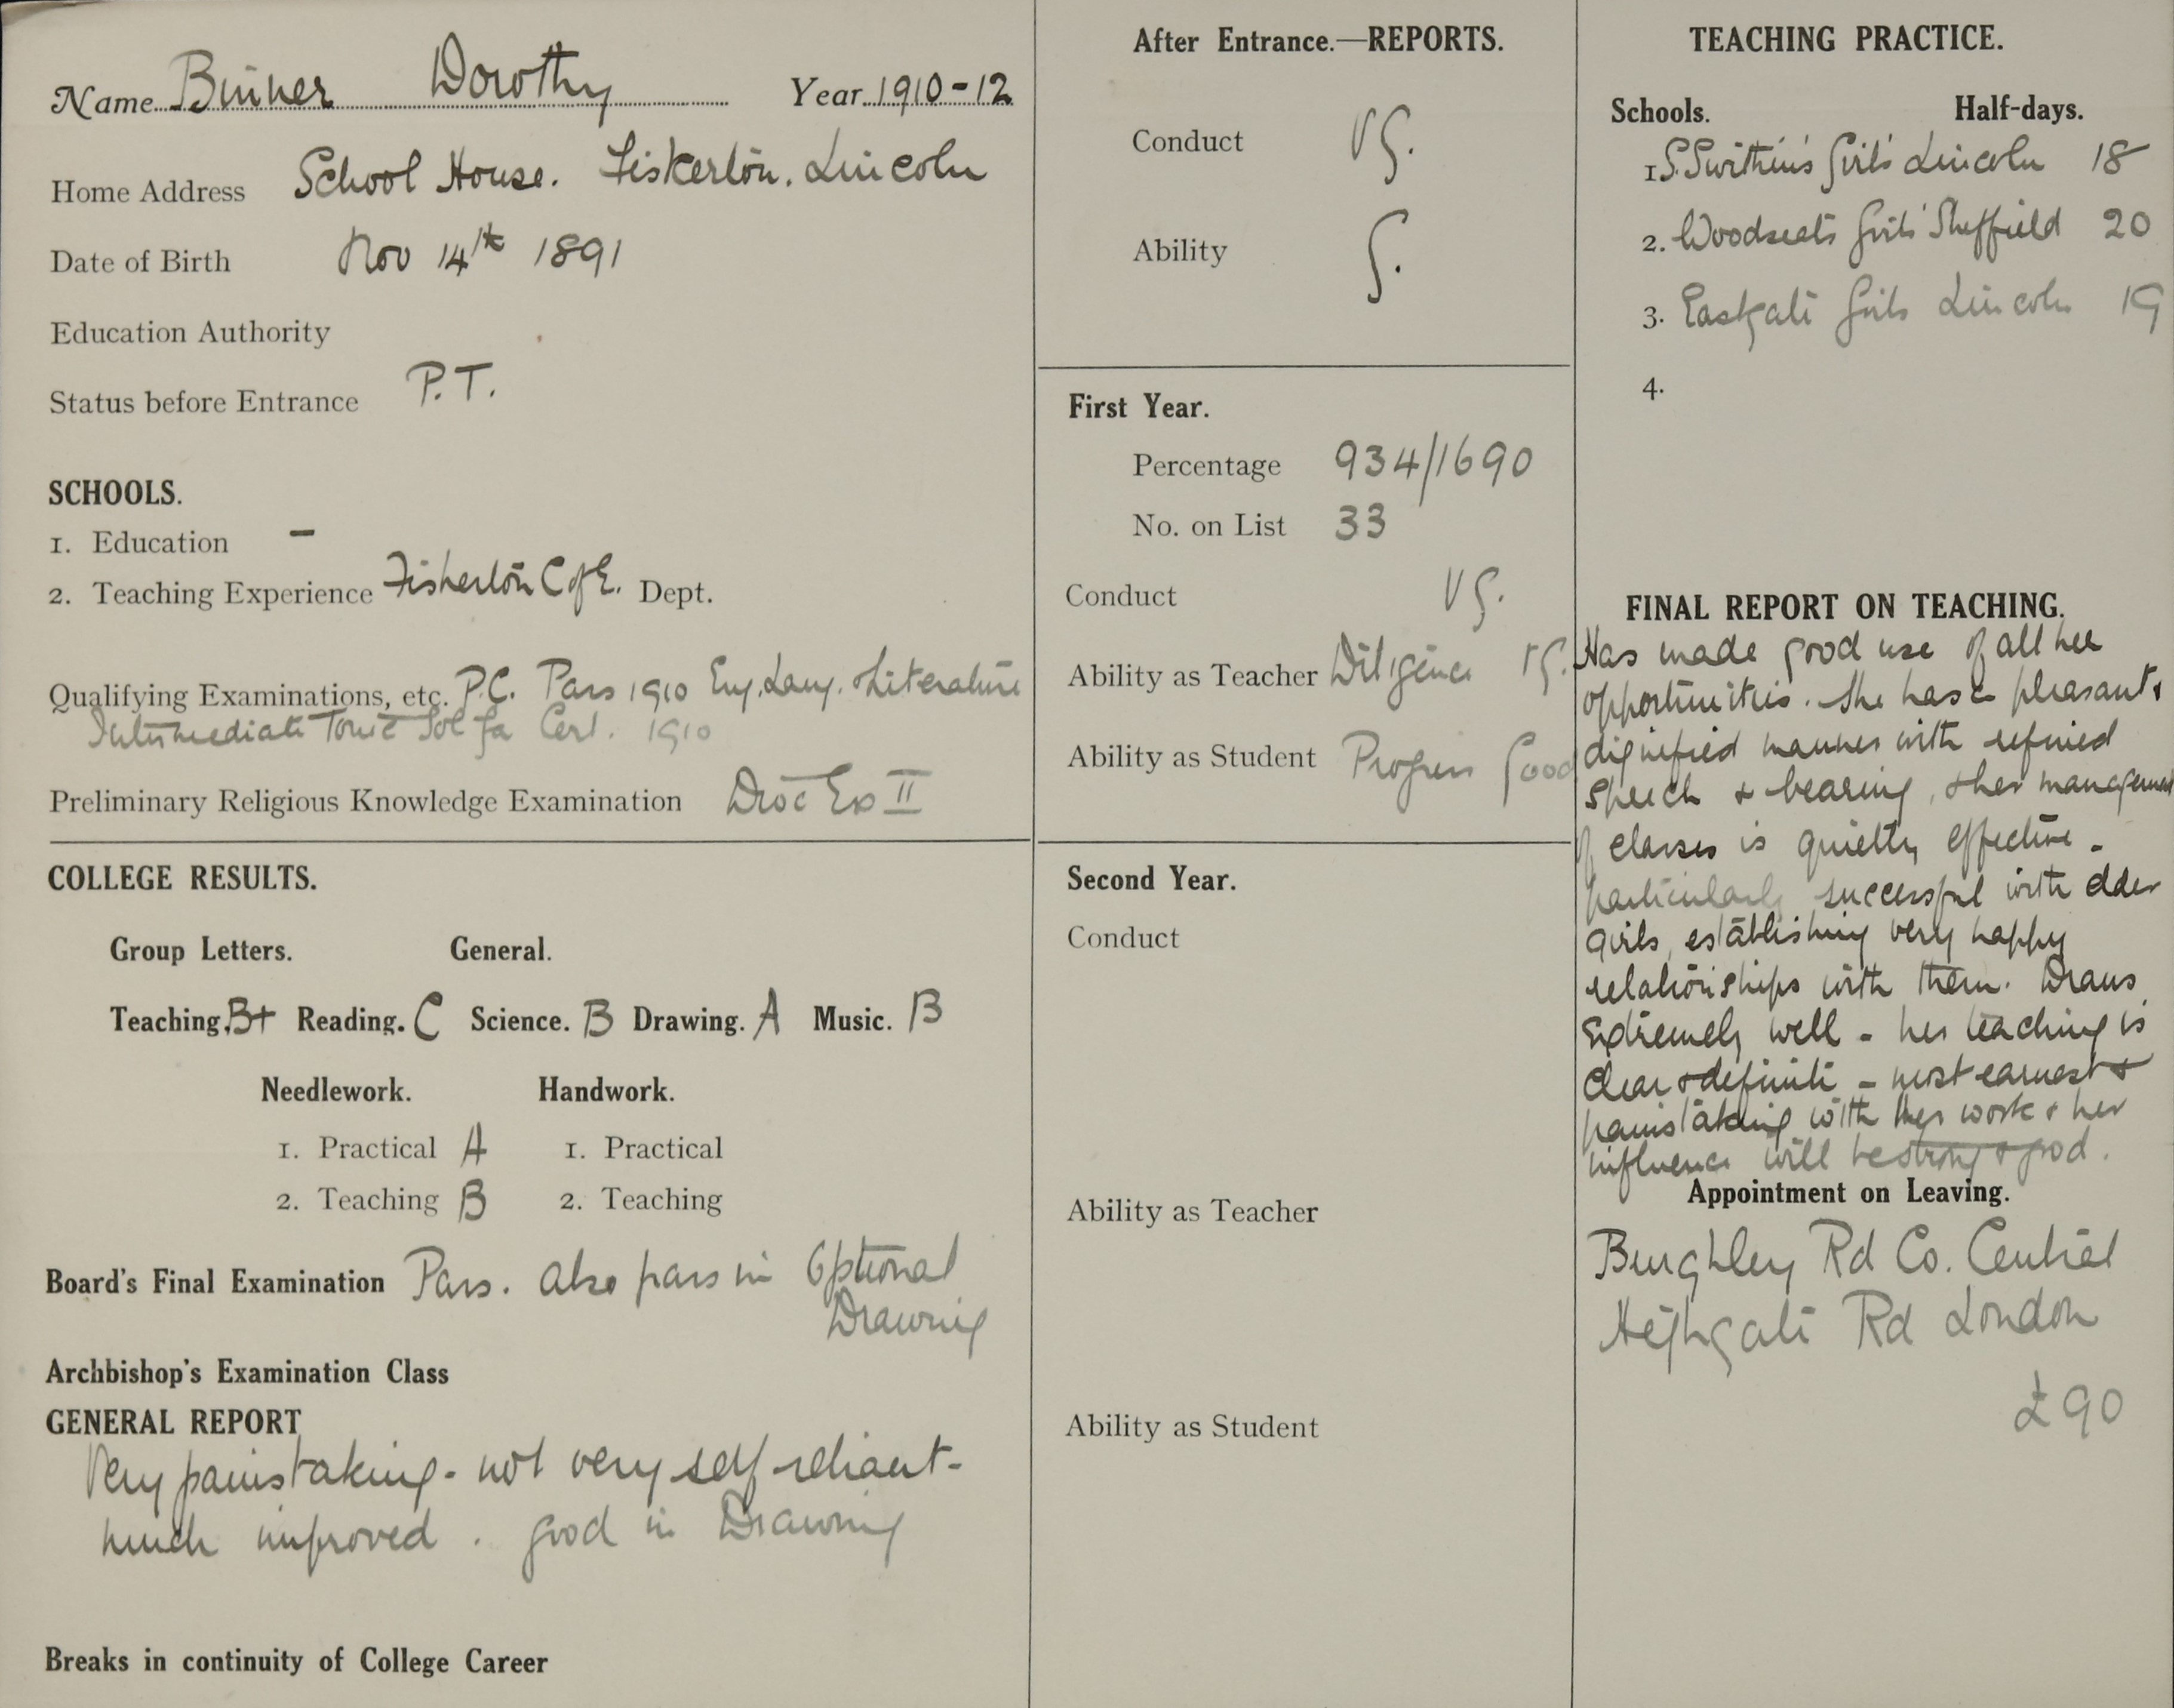 Name Binner Dorothy Year 1910-12
Home Address School House. Fiskerton. Lincoln
Date of Birth Nov 14th 1891
Education Authority
Status before Entrance P.T.
SCHOOLS.
1. Education –
2. Teaching Experience Fiskerton C of E. Dept.
Qualifying Examinations, etc. P.C. Pass 1910 Eng. Lang. & Literature
Intermediate Tonic Sol fa Cert. 1910
Preliminary Religious Knowledge Examination Dioc Ex II
COLLEGE RESULTS.
Group Letters. General.
Teaching. B+ Reading. C Science. B Drawing. A Music. B
Needlework. Handwork.
1. Practical A 1. Practical
2. Teaching B 2. Teaching
Board's Final Examination Pass. also pass in Optional
Drawing
Archbishop's Examination Class
GENERAL REPORT
Very painstaking - not very self reliant -
much improved. good in Drawing
Breaks in continuity of College Career
After Entrance.—REPORTS.
Conduct VG.
Ability G.
First Year.
Percentage 934/1690
No. on List 33
Conduct VG.
Ability as Teacher Diligence VG.
Ability as Student Progress Good
Second Year.
Conduct
Ability as Teacher
Ability as Student
TEACHING PRACTICE.
Schools. Half-days.
1. S. Swithin's Girls' Lincoln 18
2. Woodseats Girls' Sheffield 20
3. Eastgate Girls Lincoln 19
4.
FINAL REPORT ON TEACHING.
Has made good use of all her
opportunities. She has a pleasant &
dignified manner with refined
speech & bearing, & her management
of classes is quietly effective -
particularly successful with elder
girls, establishing very happy
relationships with them. Draws
extremely well - her teaching is
clear & definite - most earnest &
painstaking with her work & her
influence will be strong & good.
Appointment on Leaving.
Burghley Rd Co. Central
Highgate Rd London
£90